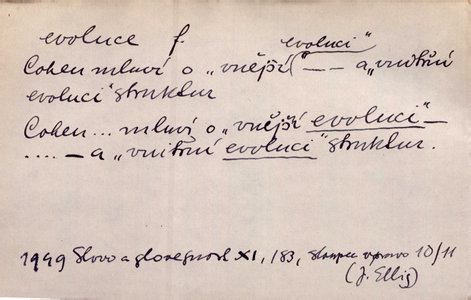 evoluce f.
evoluci"
Cohen mluví o „vnější — – a „vnitřní
evoluci" struktur
Cohen... mluví o „vnější evoluci" –
.... – a „vnitřní evoluci" struktur.
1949 Slovo a slovesnost XI, 183, sloupec vpravo 10/11
(J. Ellis)